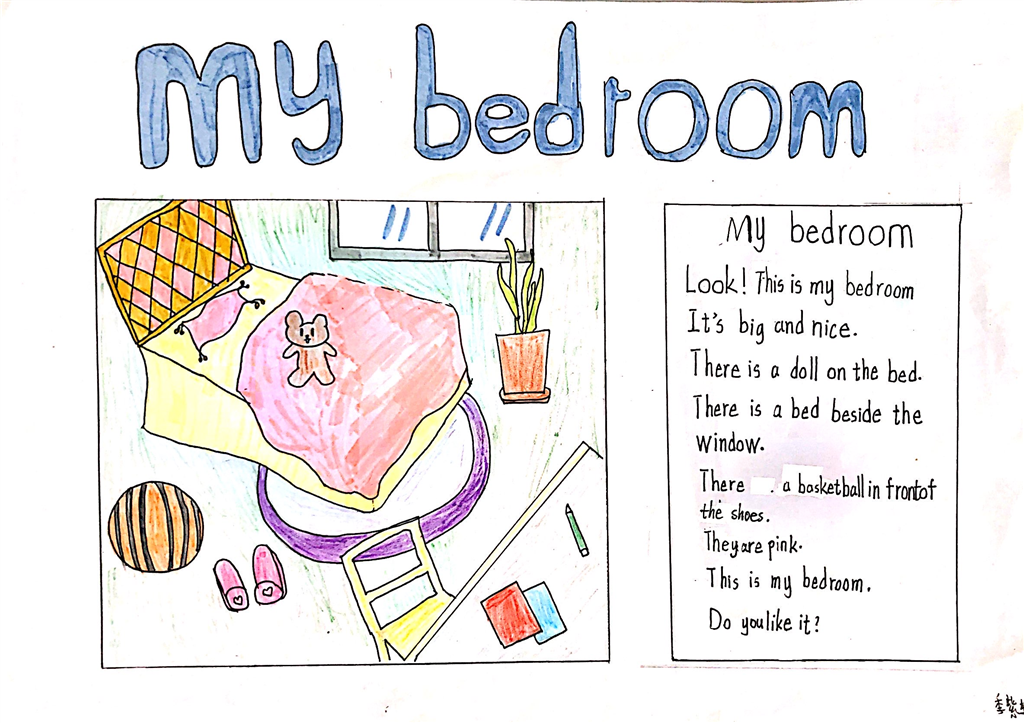 My bedroom
My bedroom
Look! This is my bedroom
It's big and nice.
There is a doll on the bed.
There is a bed beside the
window.
There . a basketball in front of
the shoes.
They are pink.
This is my bedroom.
Do you like it?
季紫